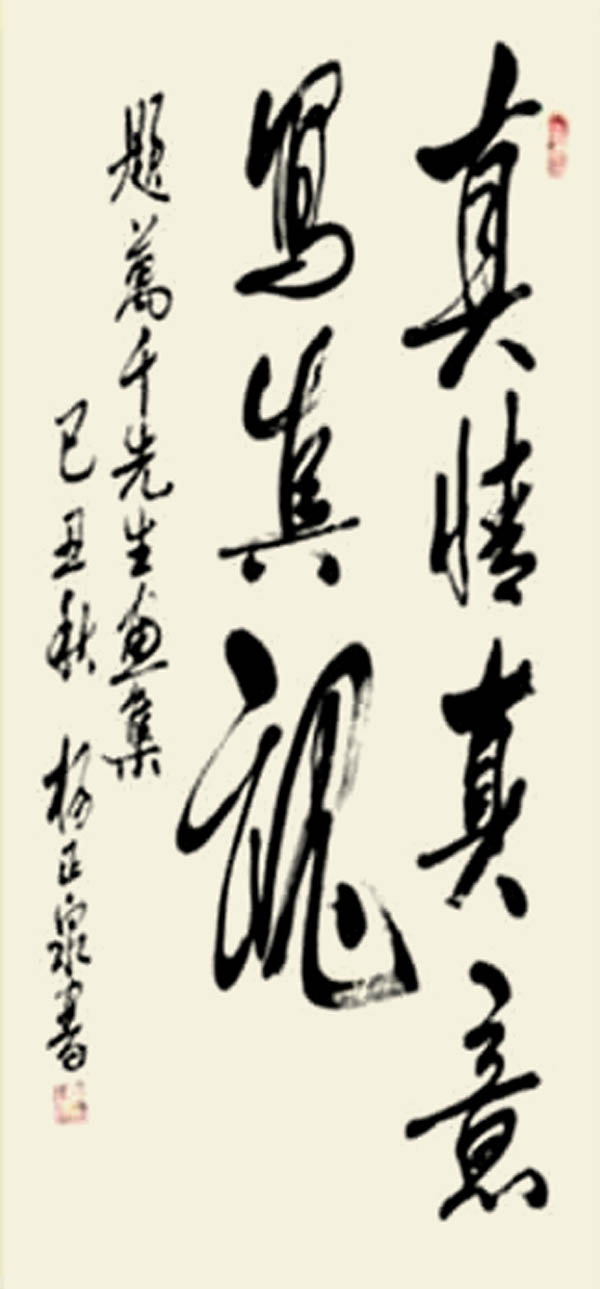 真情真意
寫真龍
題萬千先生畫集
己丑秋 楊正泉書